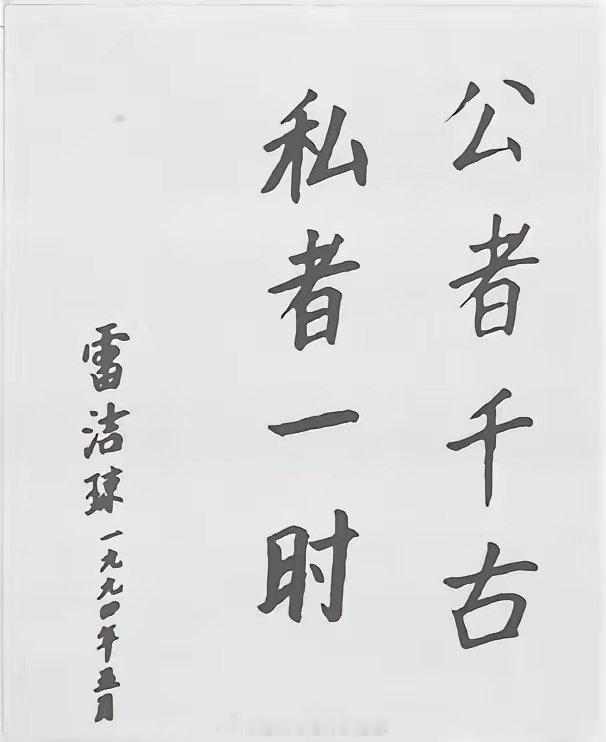 公者千古
私者一时
雷洁琼一九九〇年五月